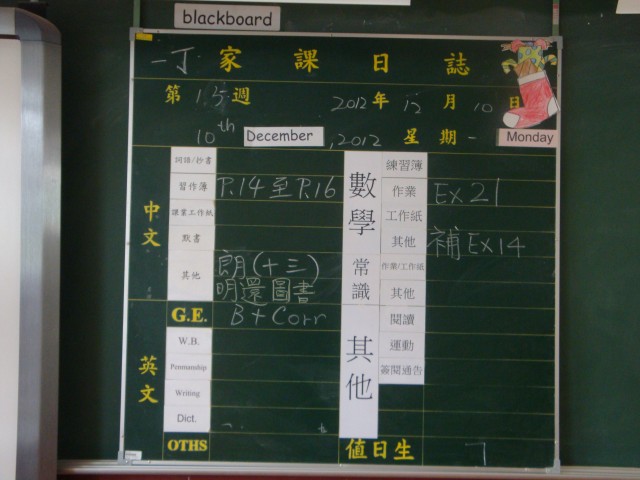 blackboard
一丁 家課日誌
第 15 週 2012 年 12 月 10 日
10th December, 2012 星期一 Monday
中文
詞語/抄書
習作簿 P.14 至 P.16
課業工作紙
默書
其他 朗(十三)
明還圖書
英文
G.E. B + Corr
W.B.
Penmanship
Writing
Dict.
OTHS
數學
練習簿
作業 Ex 21
工作紙
其他 補 Ex 14
常識
作業/工作紙
其他
其他
閱讀
運動
簽閱通告
值日生 7